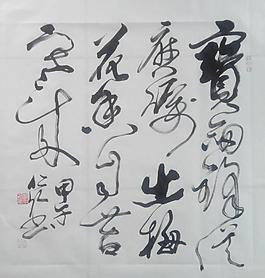 寶劍鋒從
磨礪出梅
花香自苦
寒来
甲午
书